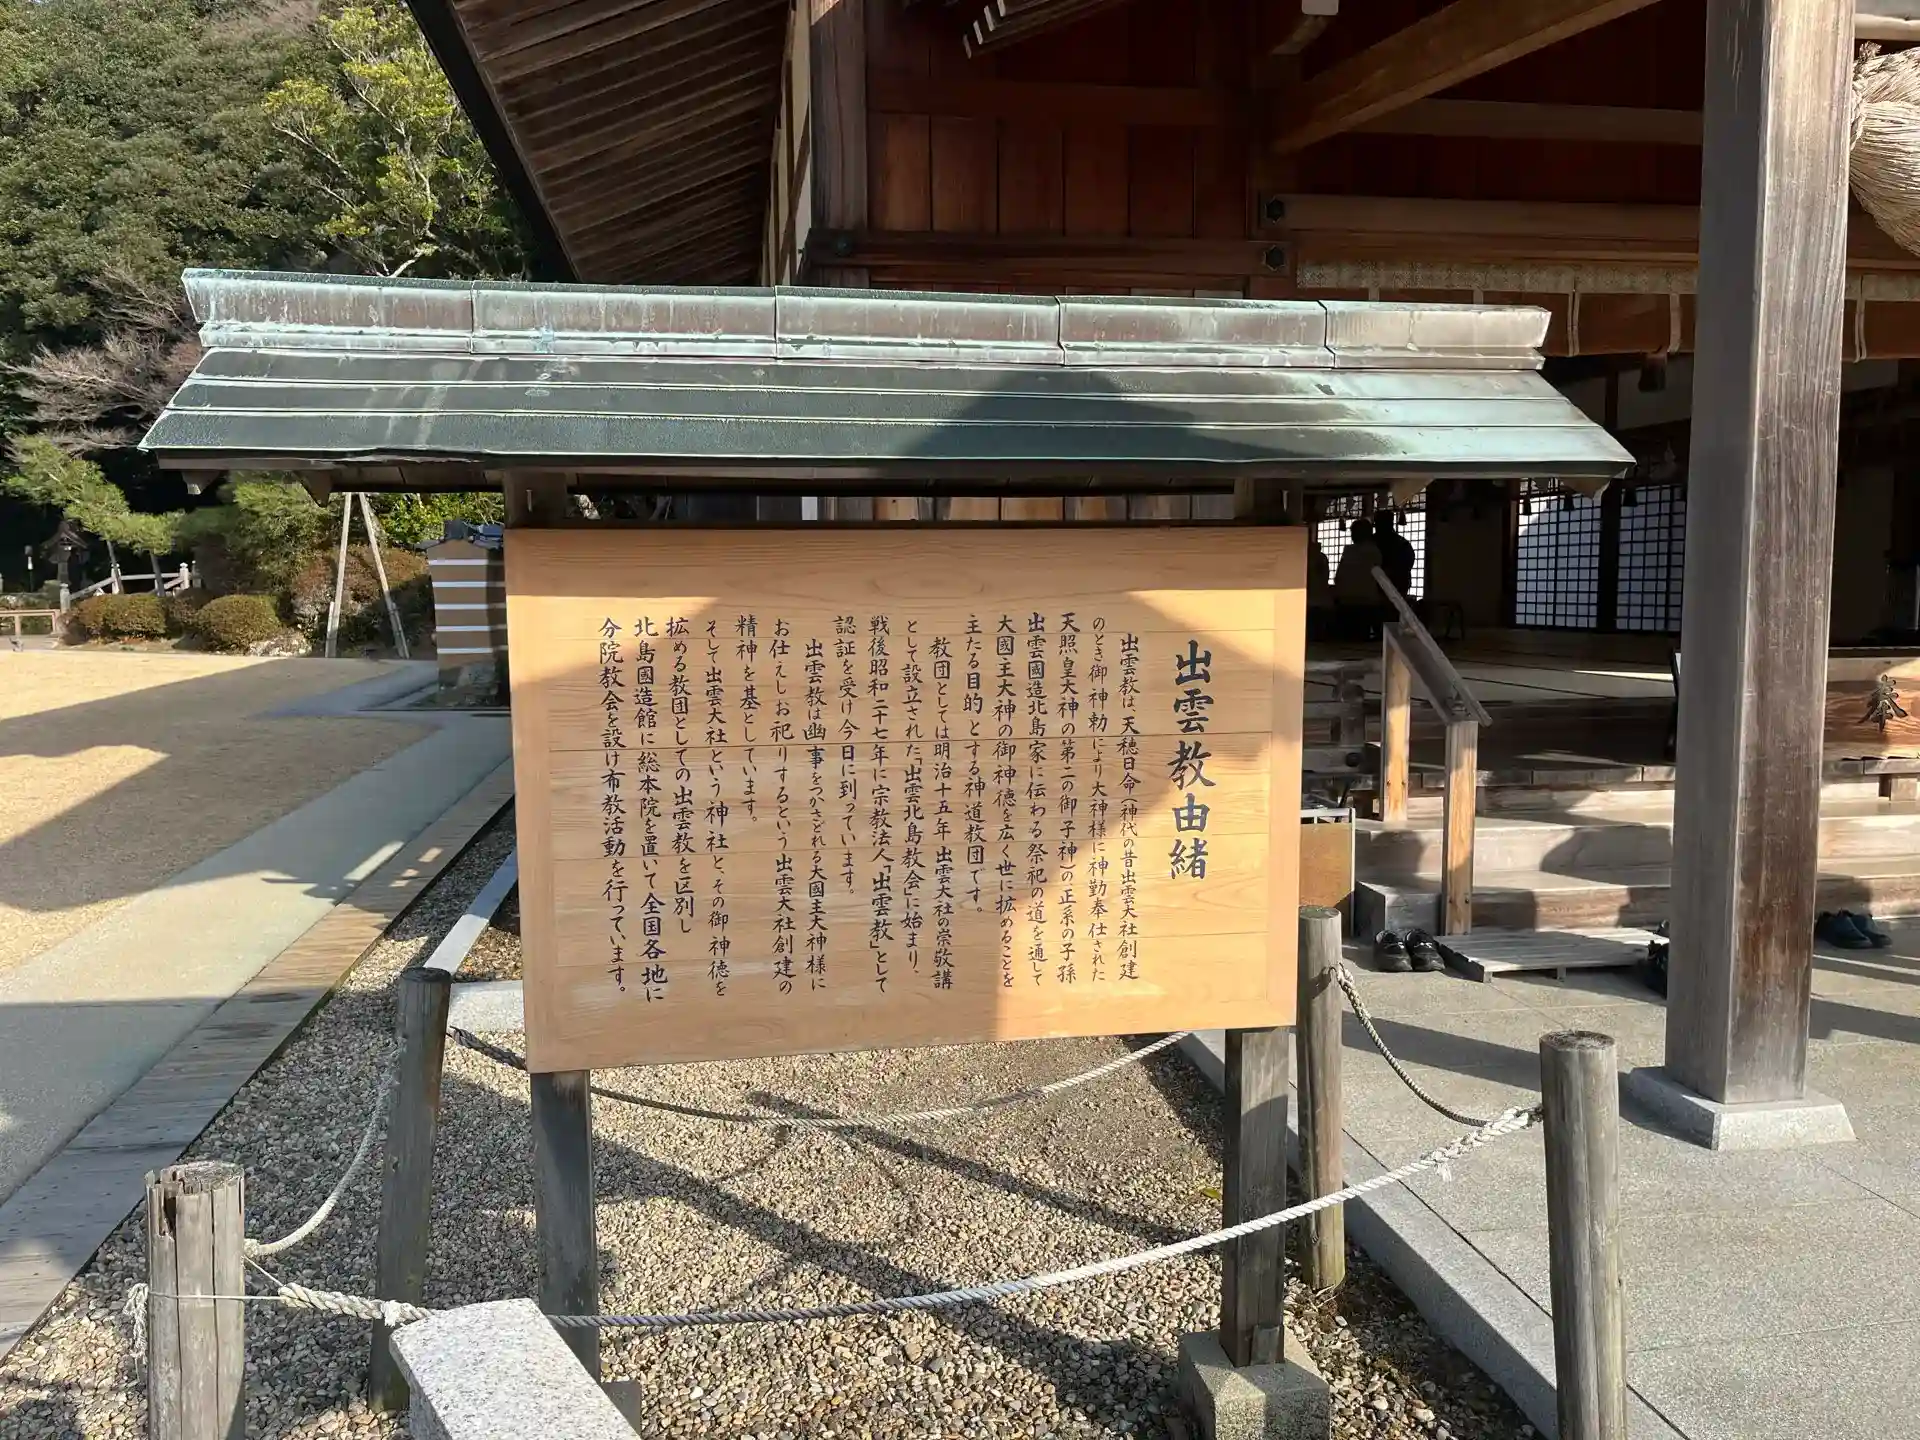 出雲教由緒
出雲教は、天穂日命(神代の昔出雲大社創建
のとき御神勅により大神様に神勤奉仕された
天照皇大神の第二の御子神)の正系の子孫
出雲國造北島家に伝わる祭祀の道を通して
大國主大神の御神徳を広く世に拡めることを
主たる目的とする神道教団です。
教団としては明治十五年出雲大社の崇敬講
として設立された「出雲北島教会」に始まり、
戦後昭和二十七年に宗教法人「出雲教」として
認証を受け今日に到っています。
出雲教は幽事をつかさどれる大國主大神様に
お仕えしお祀りするという出雲大社創建の
精神を基としています。
そして出雲大社という神社と、その御神徳を
拡める教団としての出雲教を区別し
北島國造館に総本院を置いて全国各地に
分院教会を設け布教活動を行っています。
奉